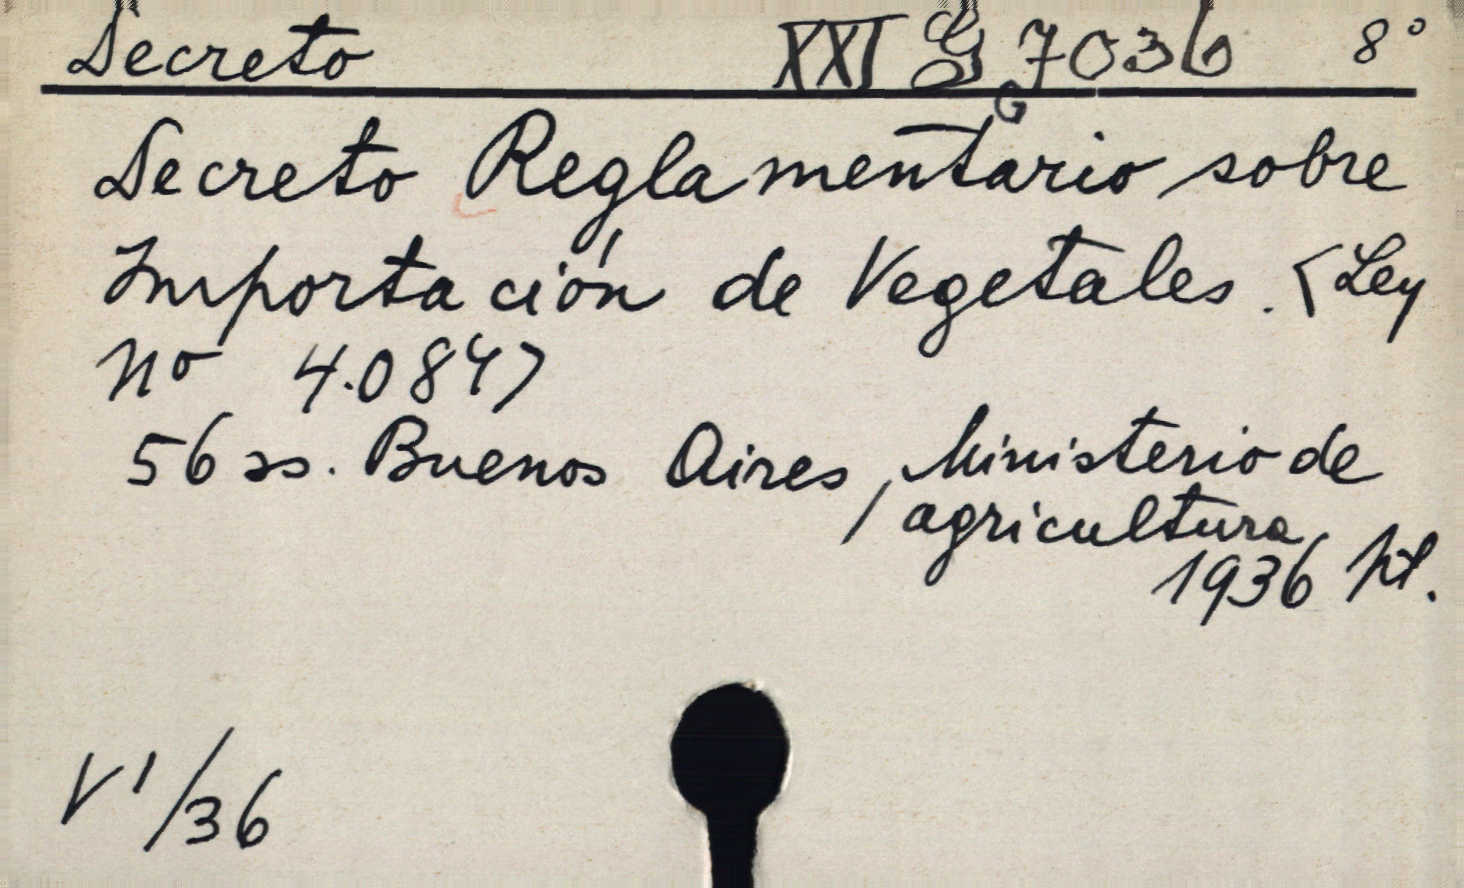 Decreto XXI G 7036 8°
G
Decreto Reglamentario sobre
Importación de Vegetales. <Ley
no 4.084>
56 ss. Buenos Aires, Ministerio de
agricultura
1936
VI/36